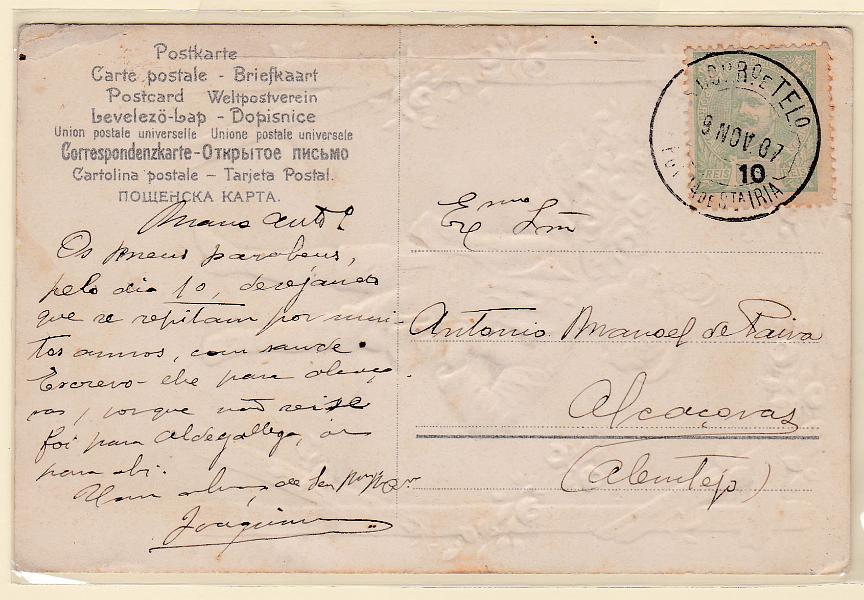 Postkarte
Carte postale - Briefkaart
Postcard Weltpostverein
Levelező-Lap - Dopisnice
Union postale universelle Unione postale universele
Correspondenzkarte - Открытое письмо
Cartolina postale - Tarjeta Postal.
ПОЩЕНСКА КАРТА.
9 NOV. 07
TELO
STA IRIA
REIS
10
Mano Antº
Os meus parabens,
pelo dia 10, desejando
que se repitam por mui-
tos annos, com saude.
Escrevo-che para Alcaço-
vas, porque não sei se
foi para Aldegallega, ou
para ahi.
Um de seu
Joaquim
Exmo Snr
Antonio Manoel de Paiva
Alcaçovas
(Alemtejo)